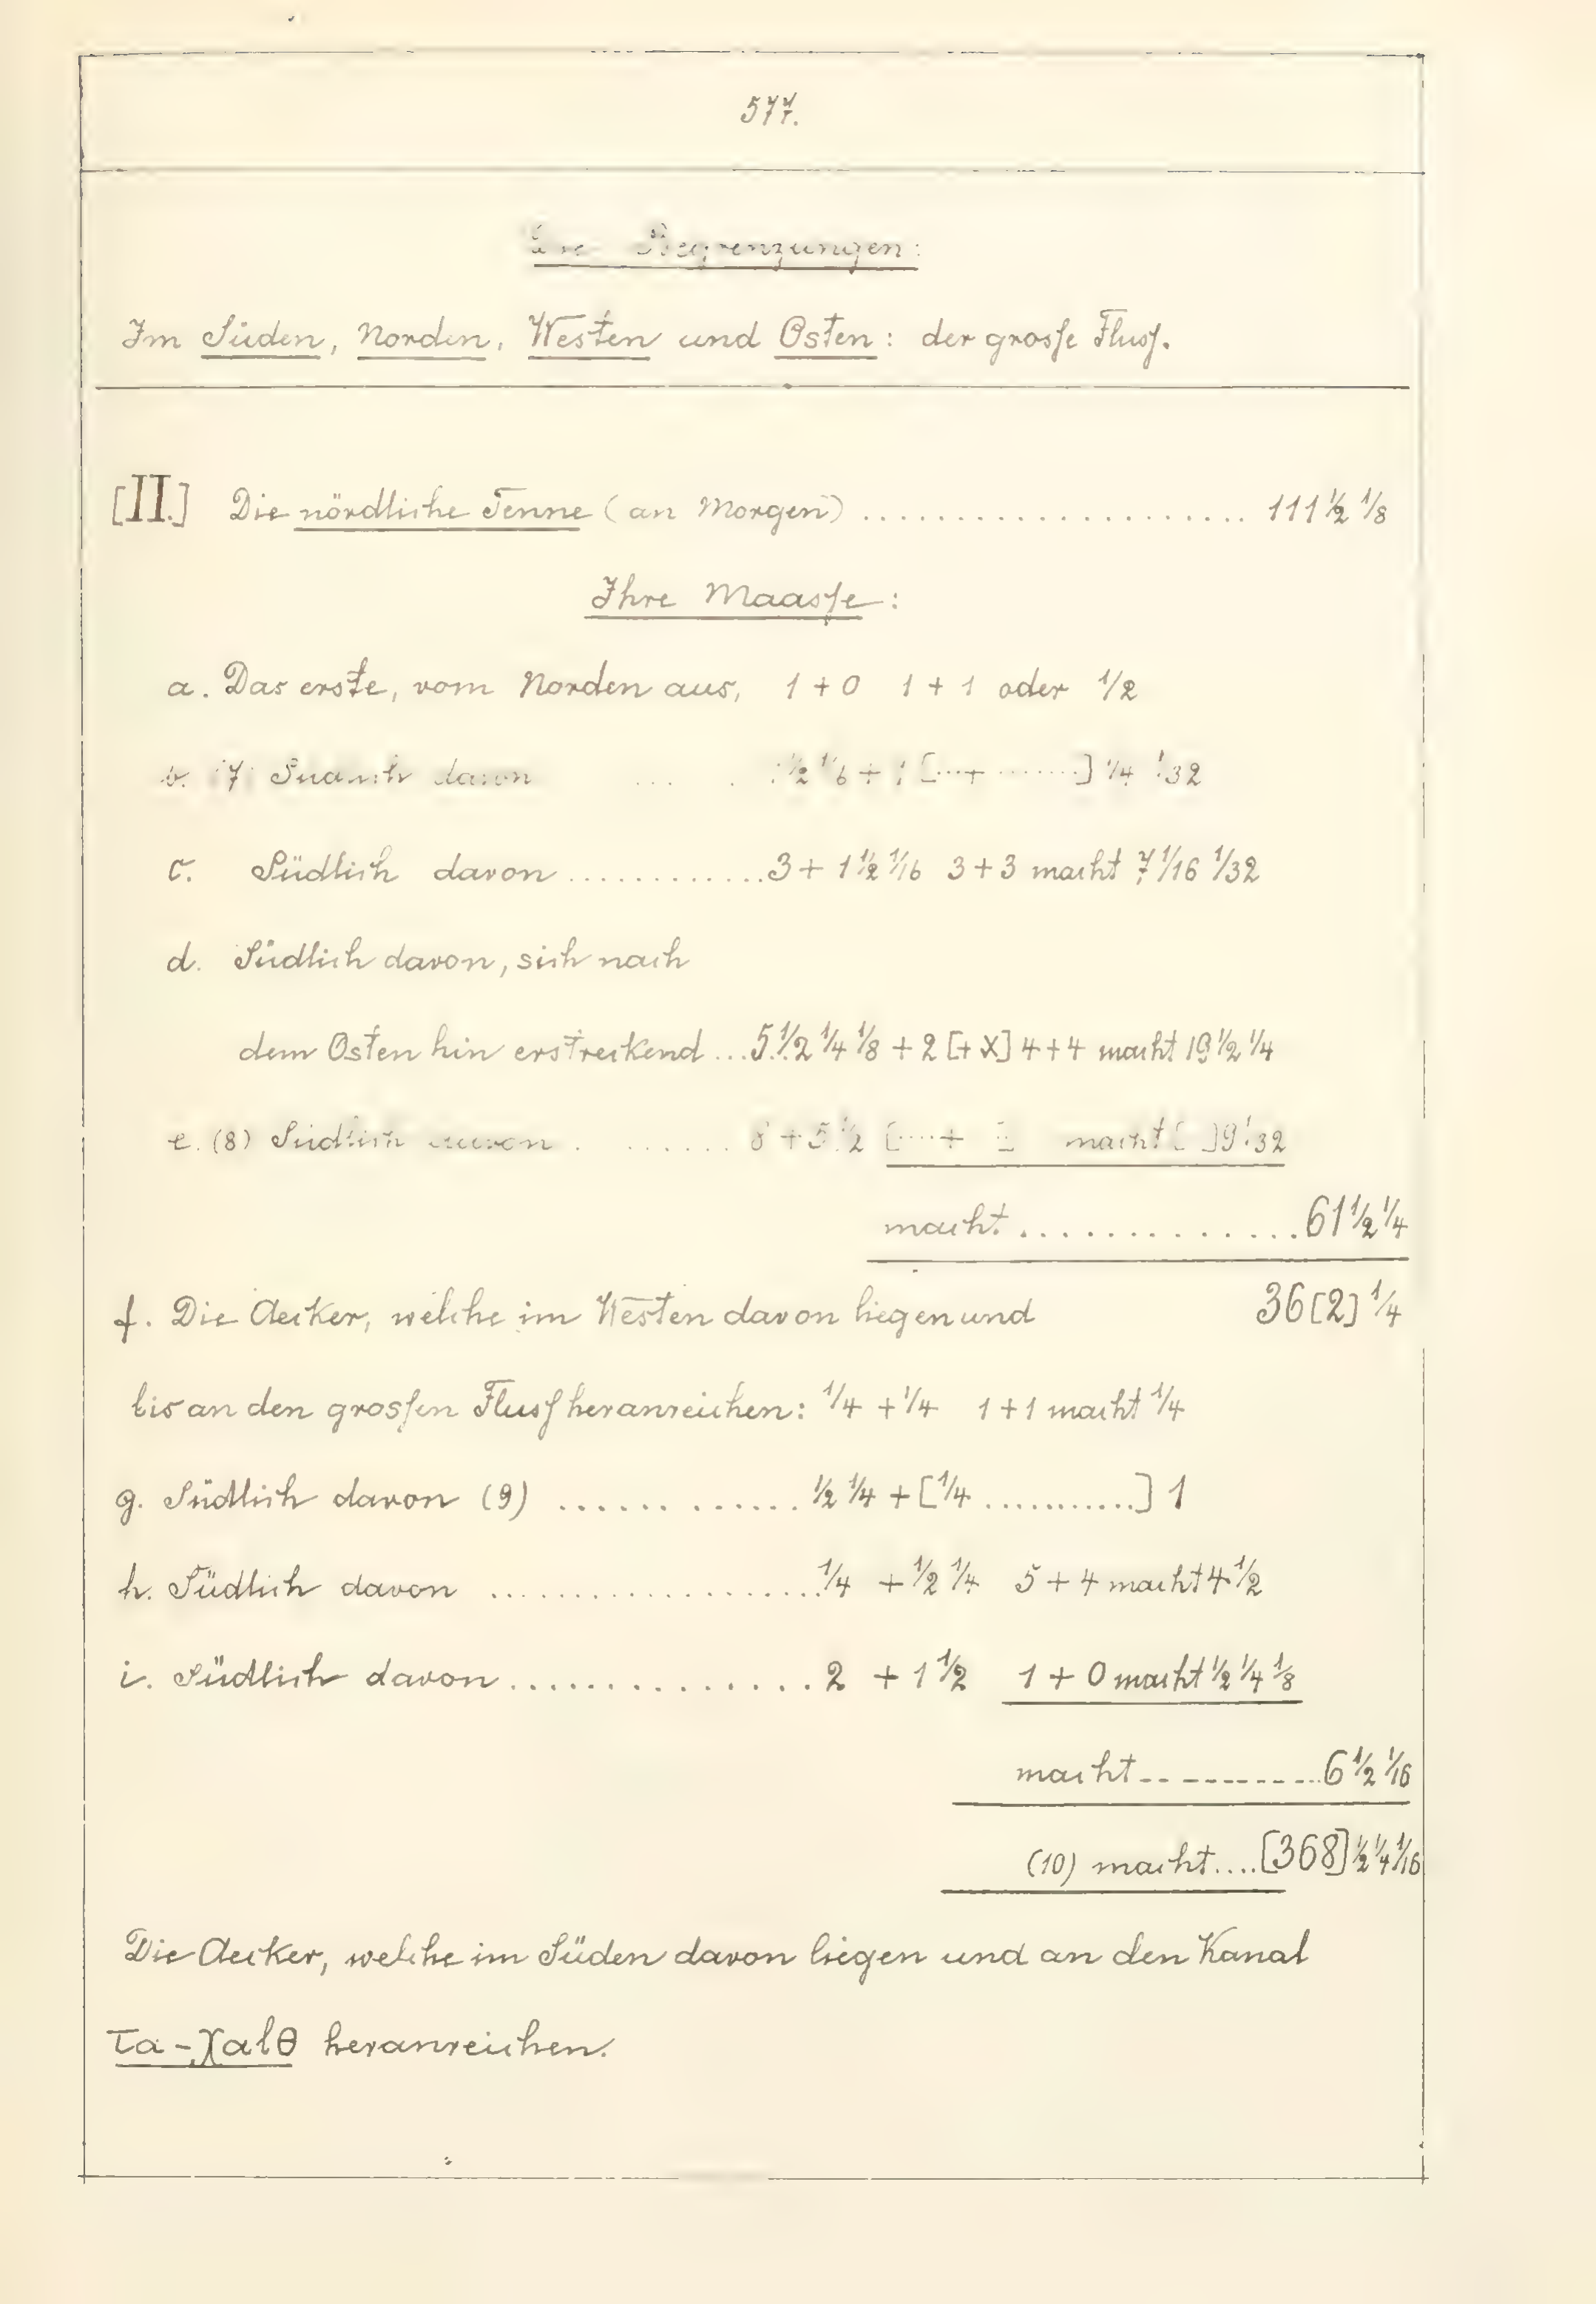 577.
Die Begrenzungen:
Im Süden, Norden, Westen und Osten: der grosse Fluss.
[II.] Die nördliche Tenne (an Morgen) ..................... 111 1/2 1/8
Ihre Maasse:
a. Das erste, vom Norden aus, 1 + 0 1 + 1 oder 1/2
b. (7) Südlich davon ... . 1/2 1/6 + [...+ ........] 1/4 1/32
c. Südlich davon ............. 3 + 1 1/2 1/16 3 + 3 macht 7 1/16 1/32
d. Südlich davon, sich nach
dem Osten hin erstreckend ... 5 1/2 1/4 1/8 + 2 [+ X] 4 + 4 macht 19 1/2 1/4
e. (8) Südlich davon . ...... 8 + 5 1/2 [....+ ] macht [ ]9 1/32
macht ............... 61 1/2 1/4
f. Die Aecker, welche im Westen davon liegen und 36[2] 1/4
bis an den grossen Fluss heranreichen: 1/4 + 1/4 1 + 1 macht 1/4
g. Südlich davon (9) ............. 1/2 1/4 + [1/4 ............] 1
h. Südlich davon .................. 1/4 + 1/2 1/4 5 + 4 macht 4 1/2
i. Südlich davon ................ 2 + 1 1/2 1 + 0 macht 1/2 1/4 1/8
macht ----------- 6 1/2 1/16
(10) macht .... [368] 1/2 1/4 1/16
Die Aecker, welche im Süden davon liegen und an den Kanal
Ta-χalθ heranreichen.